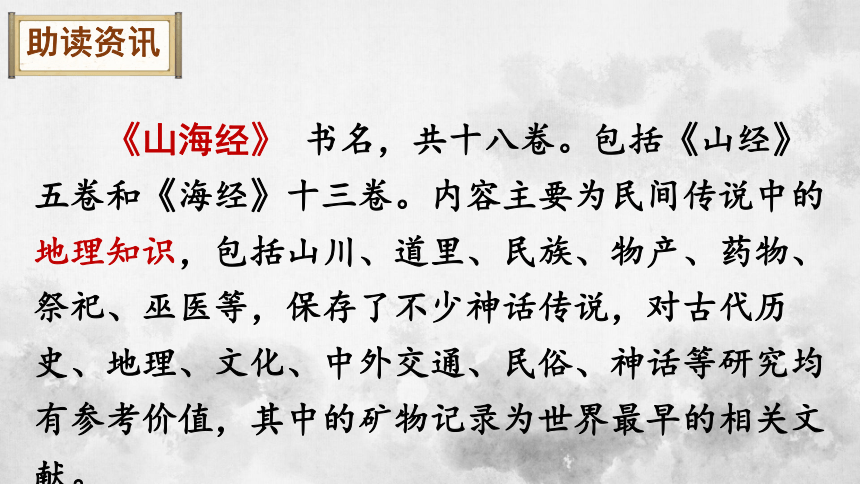 助读资讯
《山海经》 书名，共十八卷。包括《山经》
五卷和《海经》十三卷。内容主要为民间传说中的
地理知识，包括山川、道里、民族、物产、药物、
祭祀、巫医等，保存了不少神话传说，对古代历
史、地理、文化、中外交通、民俗、神话等研究均
有参考价值，其中的矿物记录为世界最早的相关文
献。